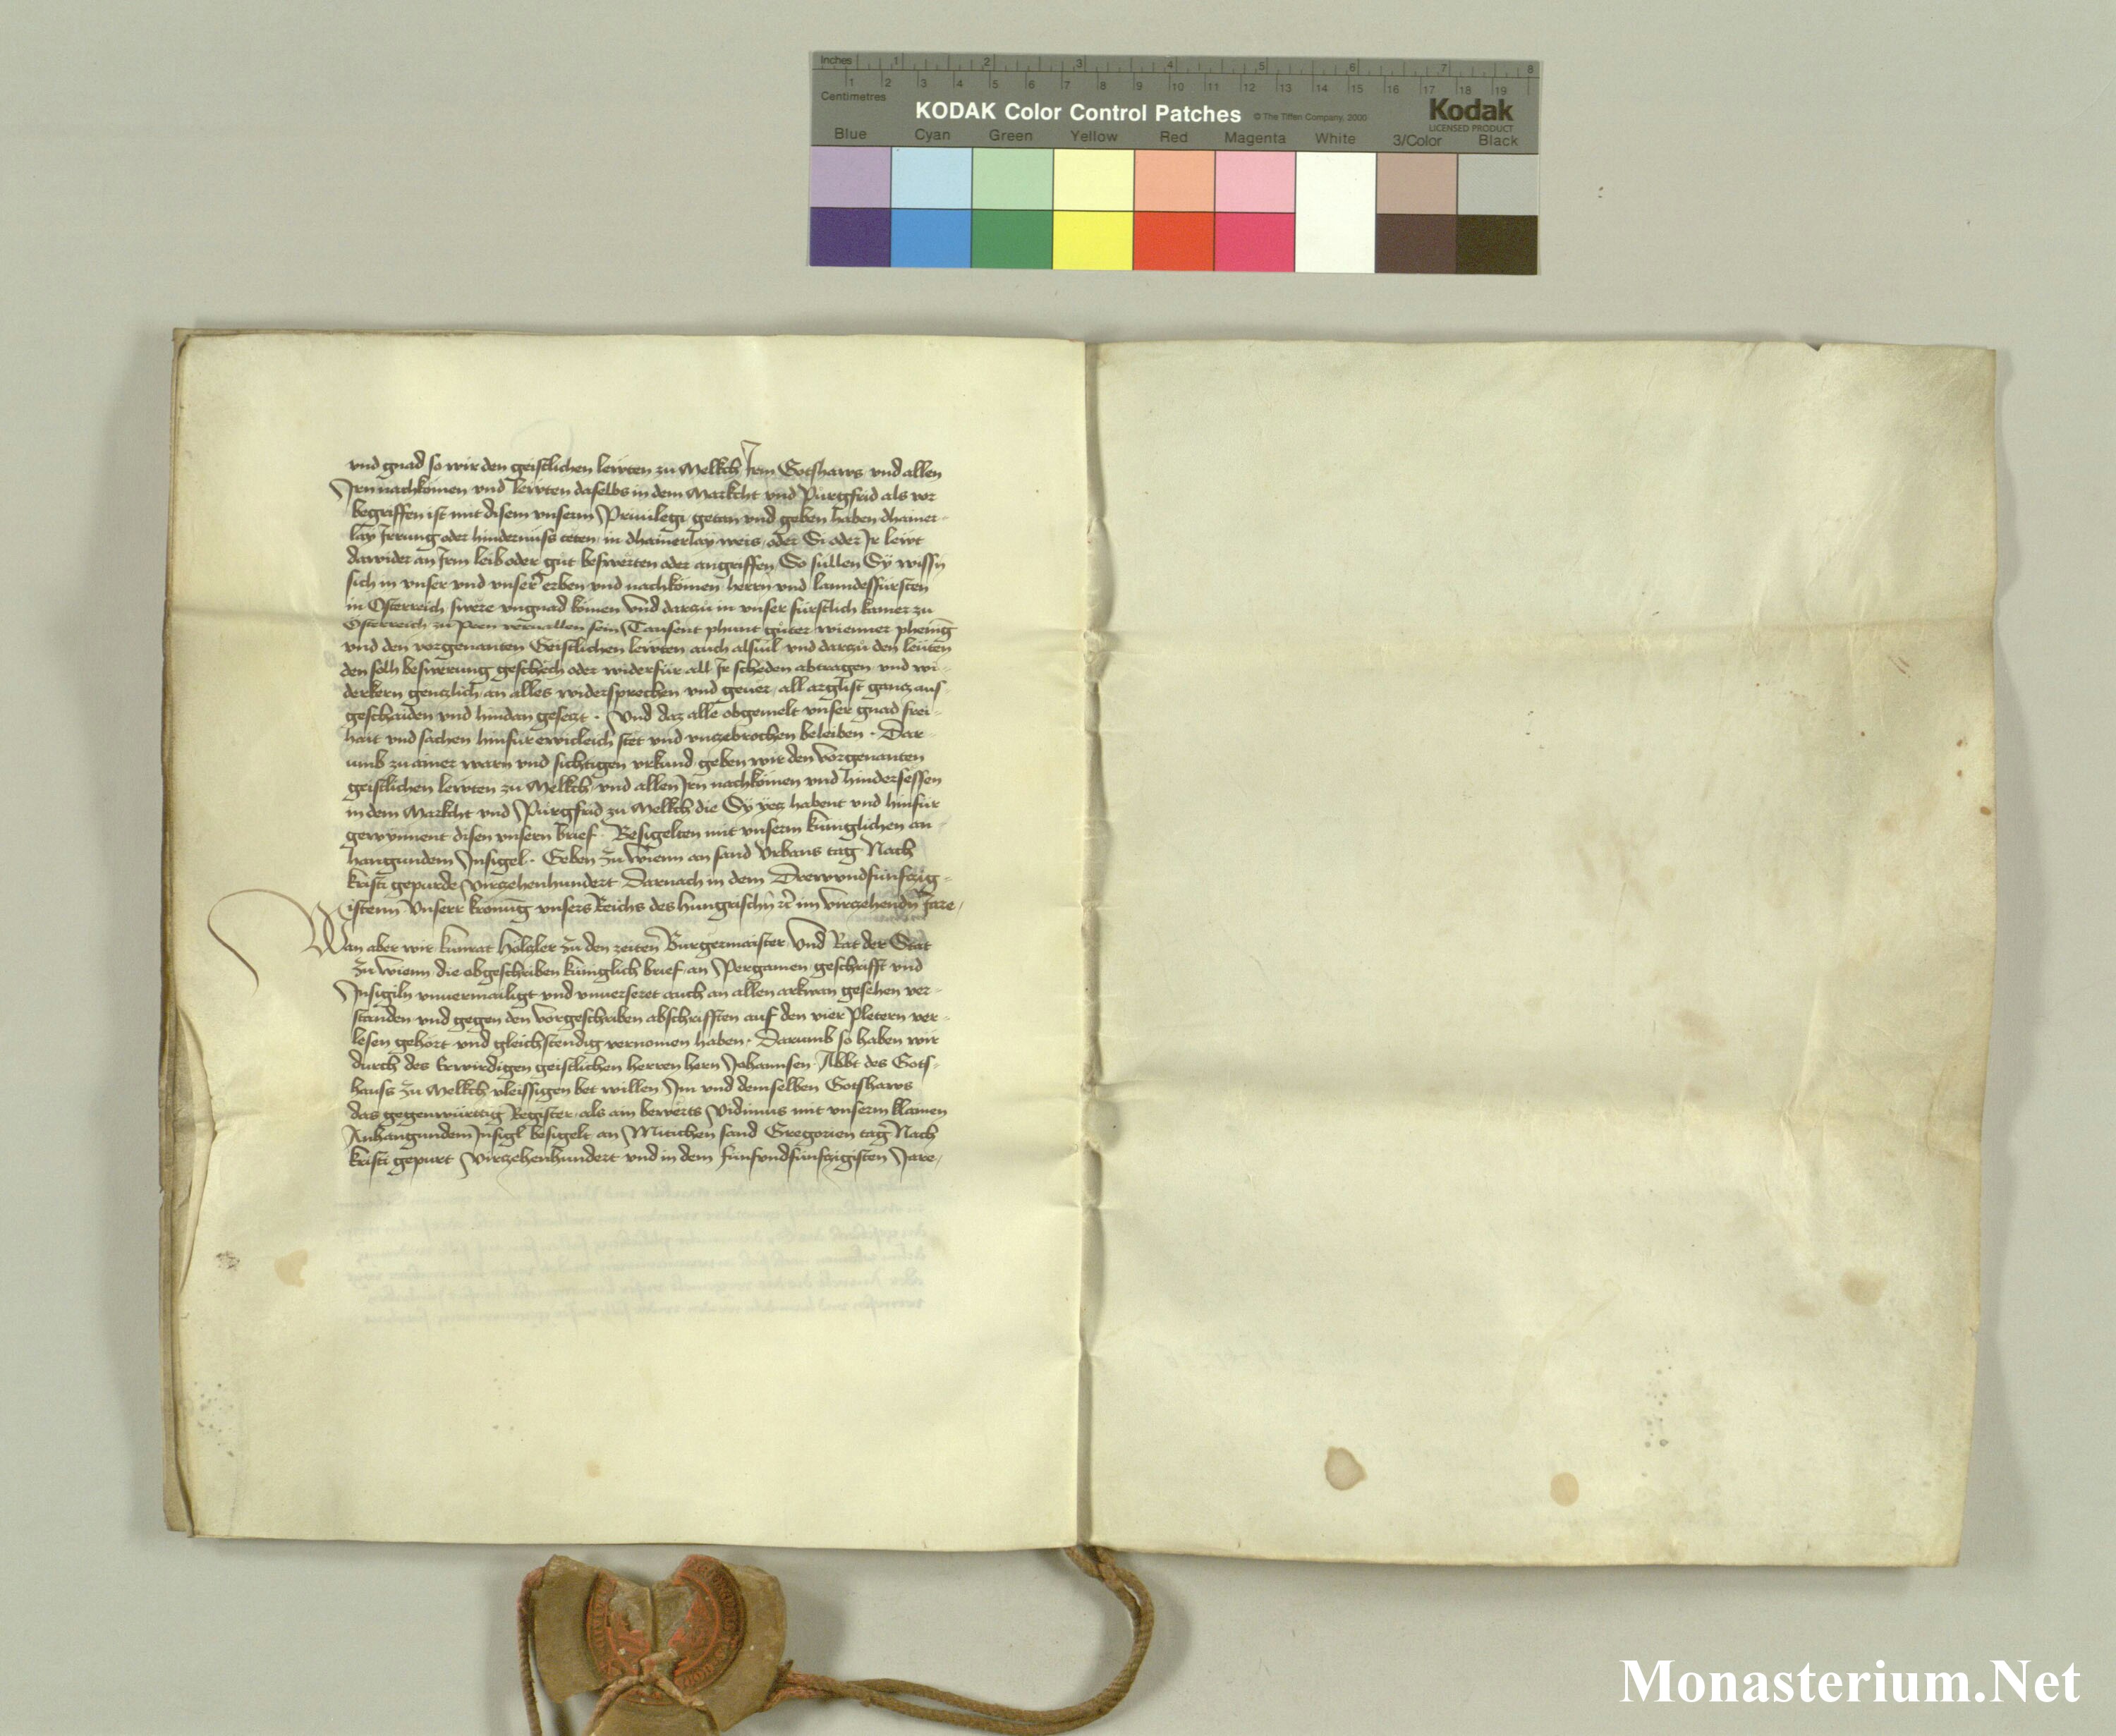 Inches 1 2 3 4 5 6 7 8
1 2 3 4 5 6 7 8 9 10 11 12 13 14 15 16 17 18 19
Centimetres
KODAK Color Control Patches © The Tiffen Company, 2000 Kodak
LICENSED PRODUCT
Blue Cyan Green Yellow Red Magenta White 3/Color Black
vnd gnad so wir den geistlichen lewten zu Melkch Irm Gotshaws vnd allen
Irn nachkomen vnd lewten daselbs in dem Markcht vnd Purgfrid als vor
begriffen ist mit disem vnserm Priuilegi getan vnd geben haben dhainer-
lay Irrung oder hindernuss teten in dhainerlay weis oder Si oder Ir lewt
dawider an Irm leib oder gut beswerten oder angriffen So sullen Sy wissn
sich in vnser vnd vnser erben vnd nachkomen herrn vnd lanndesfürsten
in Osterreich swere vngnad komen vnd darzu in vnser fürstlich kamer zu
Osterreich zu Peen veruallen sein Tausent phunt guter wienner phening
vnd den vorgenanten Geistlichen lewten auch alsuil vnd darzu den leuten
den solh beswerung geschech oder widerfür all Ir scheden abtragen vnd wi-
derkern genczlich an alles widersprechen vnd geuer, all arglist gancz aus-
geschaiden vnd hindan gesetzt. Vnd daz alle obgemelt vnser gnad frei-
hait vnd sachen hinfür ewicleich stet vnd vnzebrochen beleiben. Dar-
umb zu ainer warn vnd sichtigen vrkund geben wir den vorgenanten
geistlichen lewten zu Melkch vnd allen Irn nachkomen vnd hindersessen
in dem Markcht vnd Purgfrid zu Melkch die Sy yecz habent vnd hinfür
gewynnent disen vnsern brief. Besigelten mit vnserm kuniglichen an-
hangundem Insigel. Geben zu Wienn an sand Vrbans tag Nach
kristi gepurde Virczehenhundert Darnach in dem Drewvndfunfczig-
istenn Vnserr kronung vnsers Reichs des hungrischn rc im virczehendn Jare,
Wan aber wir kunrat Holzler zu den zeiten Burgermaister vnd Rat der Stat
zu wienn die obgeschriben kuniglich brief an Pergamen geschrifft vnd
Insigiln vnuermailigt vnd vnuerseret auch an allen arkwan gesehen ver-
standen vnd gegen den vorgeschriben abschrifften auf den vier Pletern ver-
lesen gehort vnd gleichstendig vernomen haben. Darumb so haben wir
durch des Erwirdigen geistlichen herren hern Johannsen Abbt des Gots-
hauss zu Melkch vleissigen bet willen Im vnd demselben Gotshaws
das gegenwürttig Register, als ain bewerts Vidimus mit vnserm klainen
Anhangundem Insigl besigelt an Mitichen sand Gregorien tag Nach
kristi gepurt Virczehenhundert vnd in dem funfvndfunfczigisten Jare,
Monasterium.Net